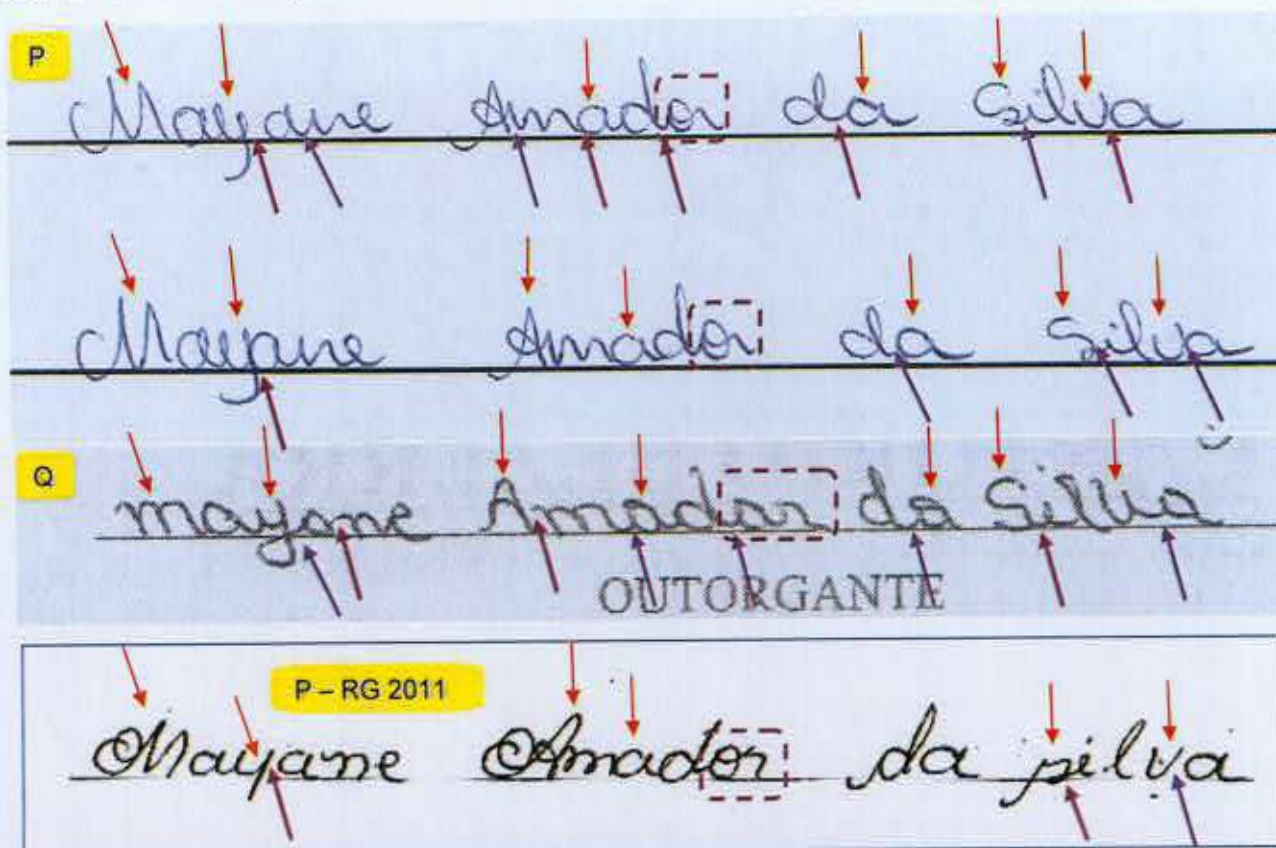 P
Mayane Amador da Silva
Mayane Amador da Silva
Q
mayane Amador da Silva
OUTORGANTE
P – RG 2011
Mayane Amador da Silva